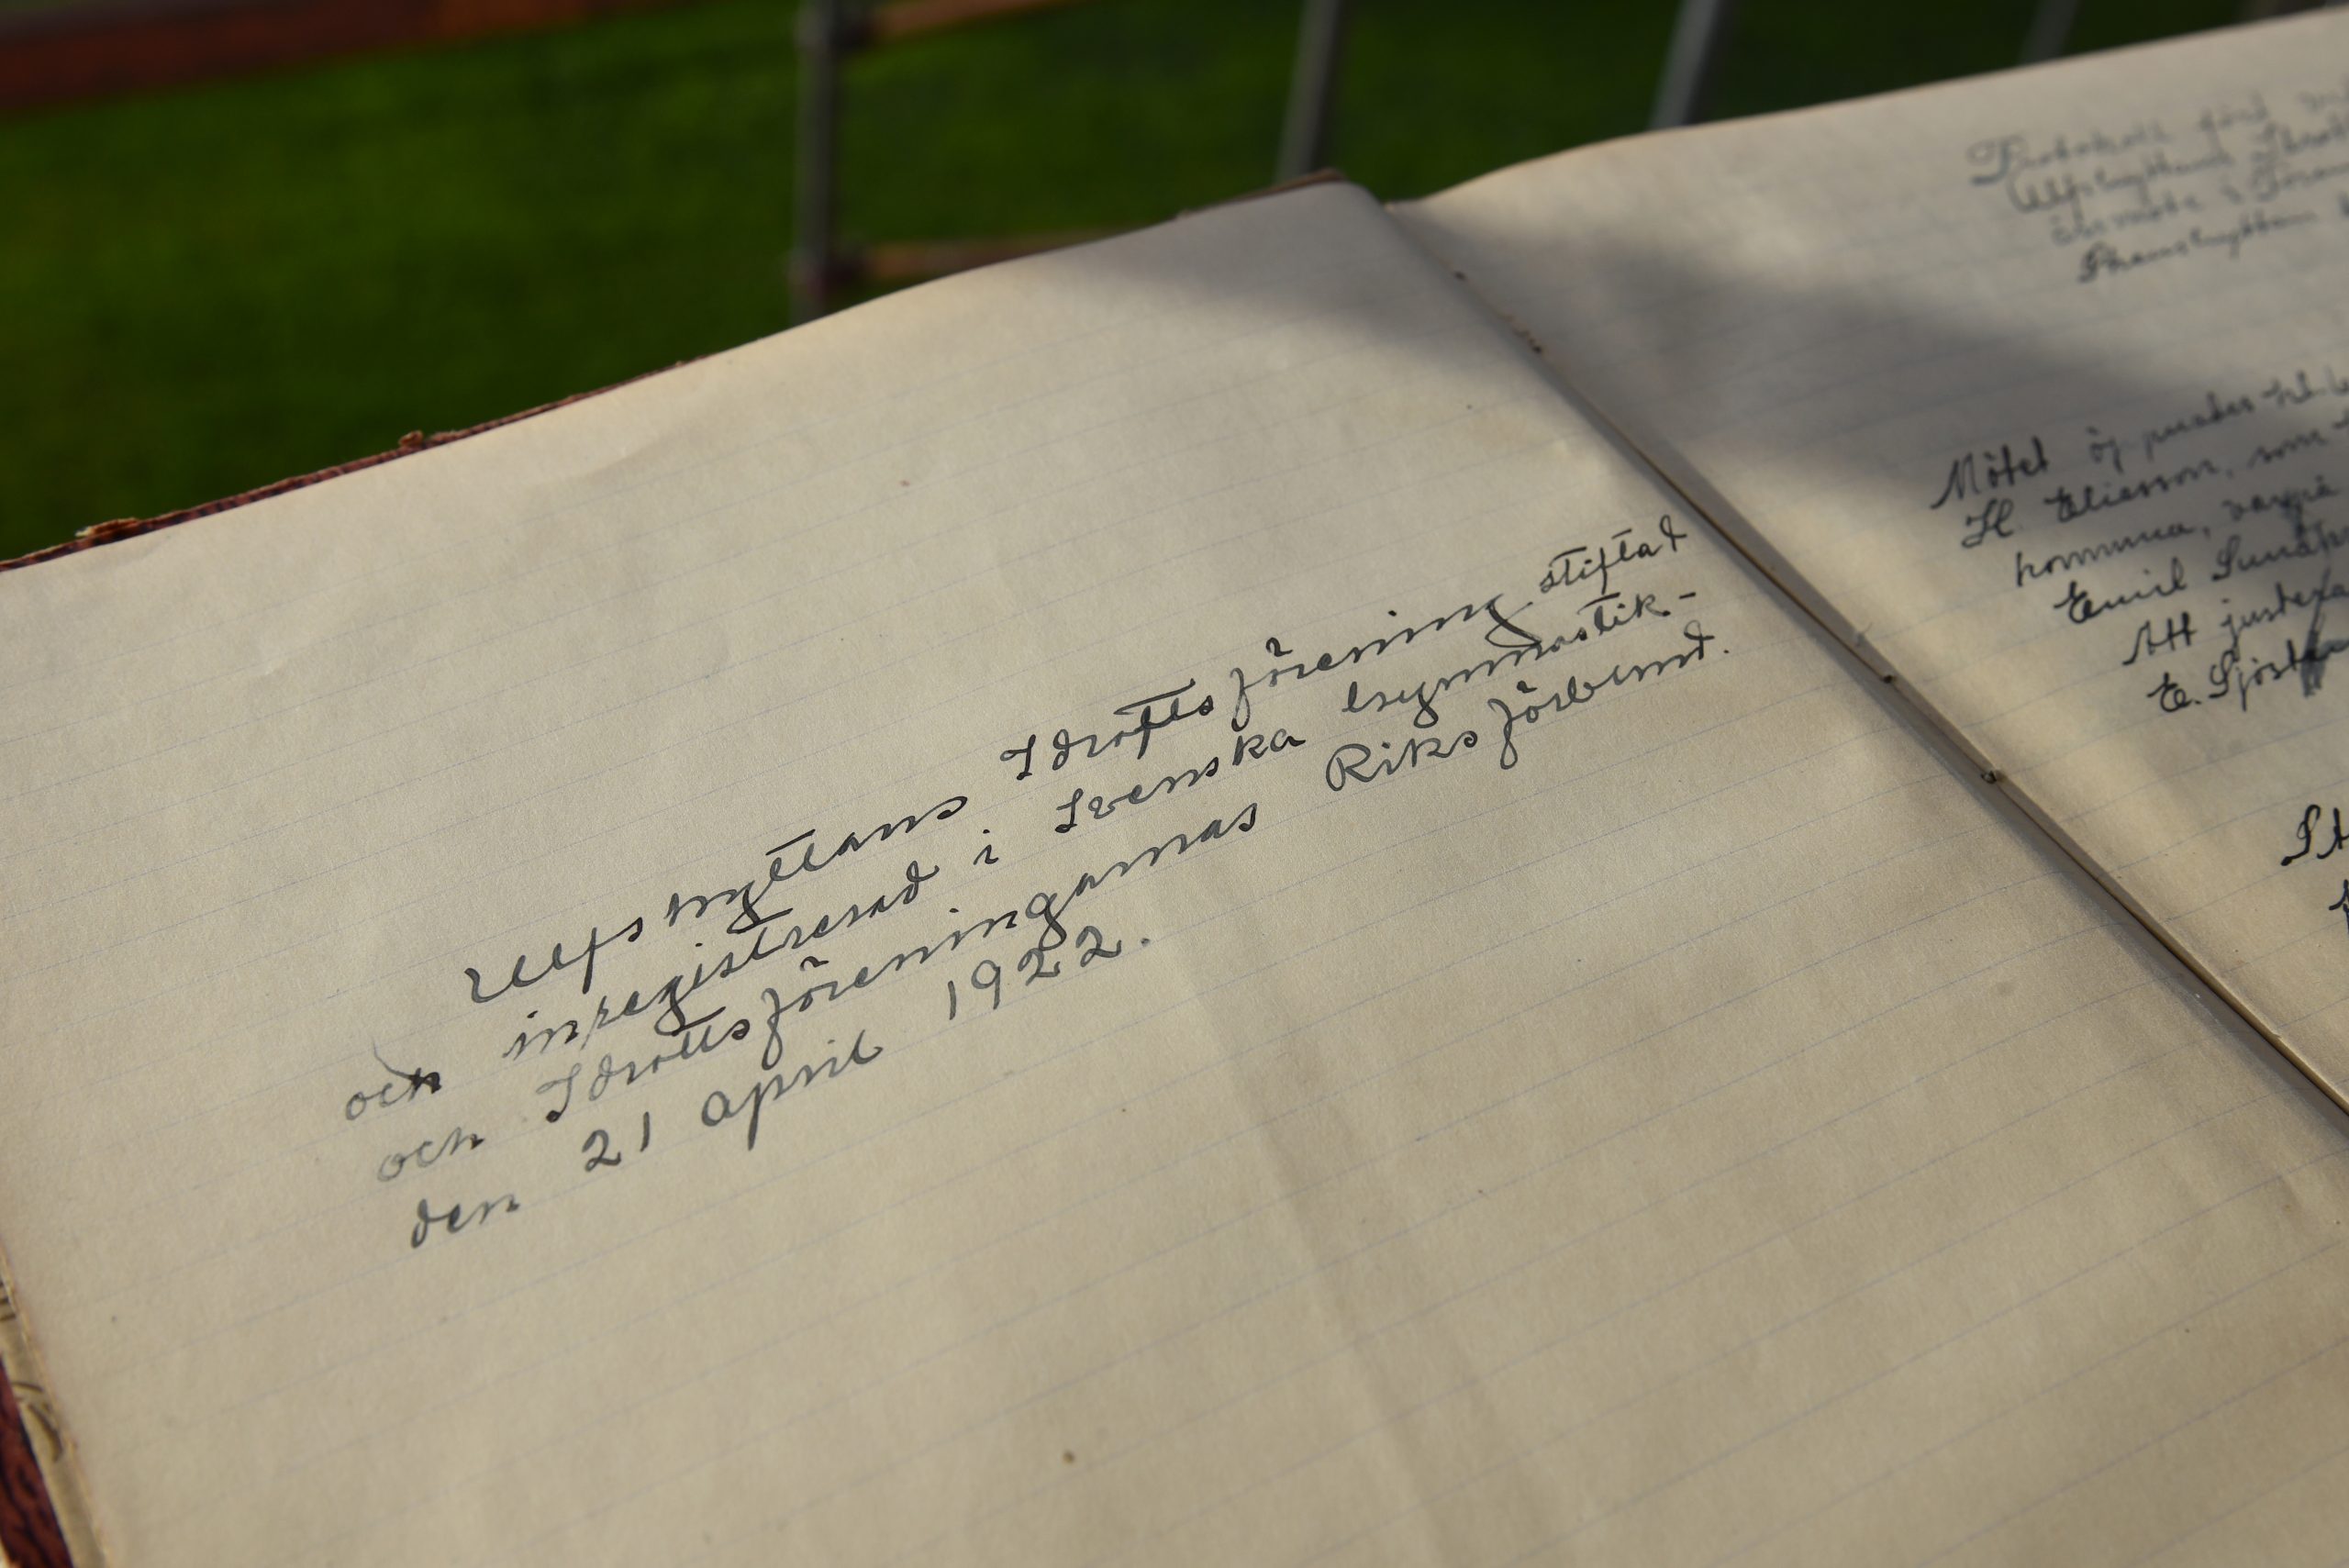 Ulfshyttans Idrottsförening stiftad
och inregistrerad i Svenska Gymnastik-
och Idrottsföreningarnas Riksförbund.
den 21 april 1922.
Protokoll fört
Ulfshyttans
årsmöte i
Mötet öppnades
H. Eliesson, som
komma, varpå
Emil
Att justera
E.
St